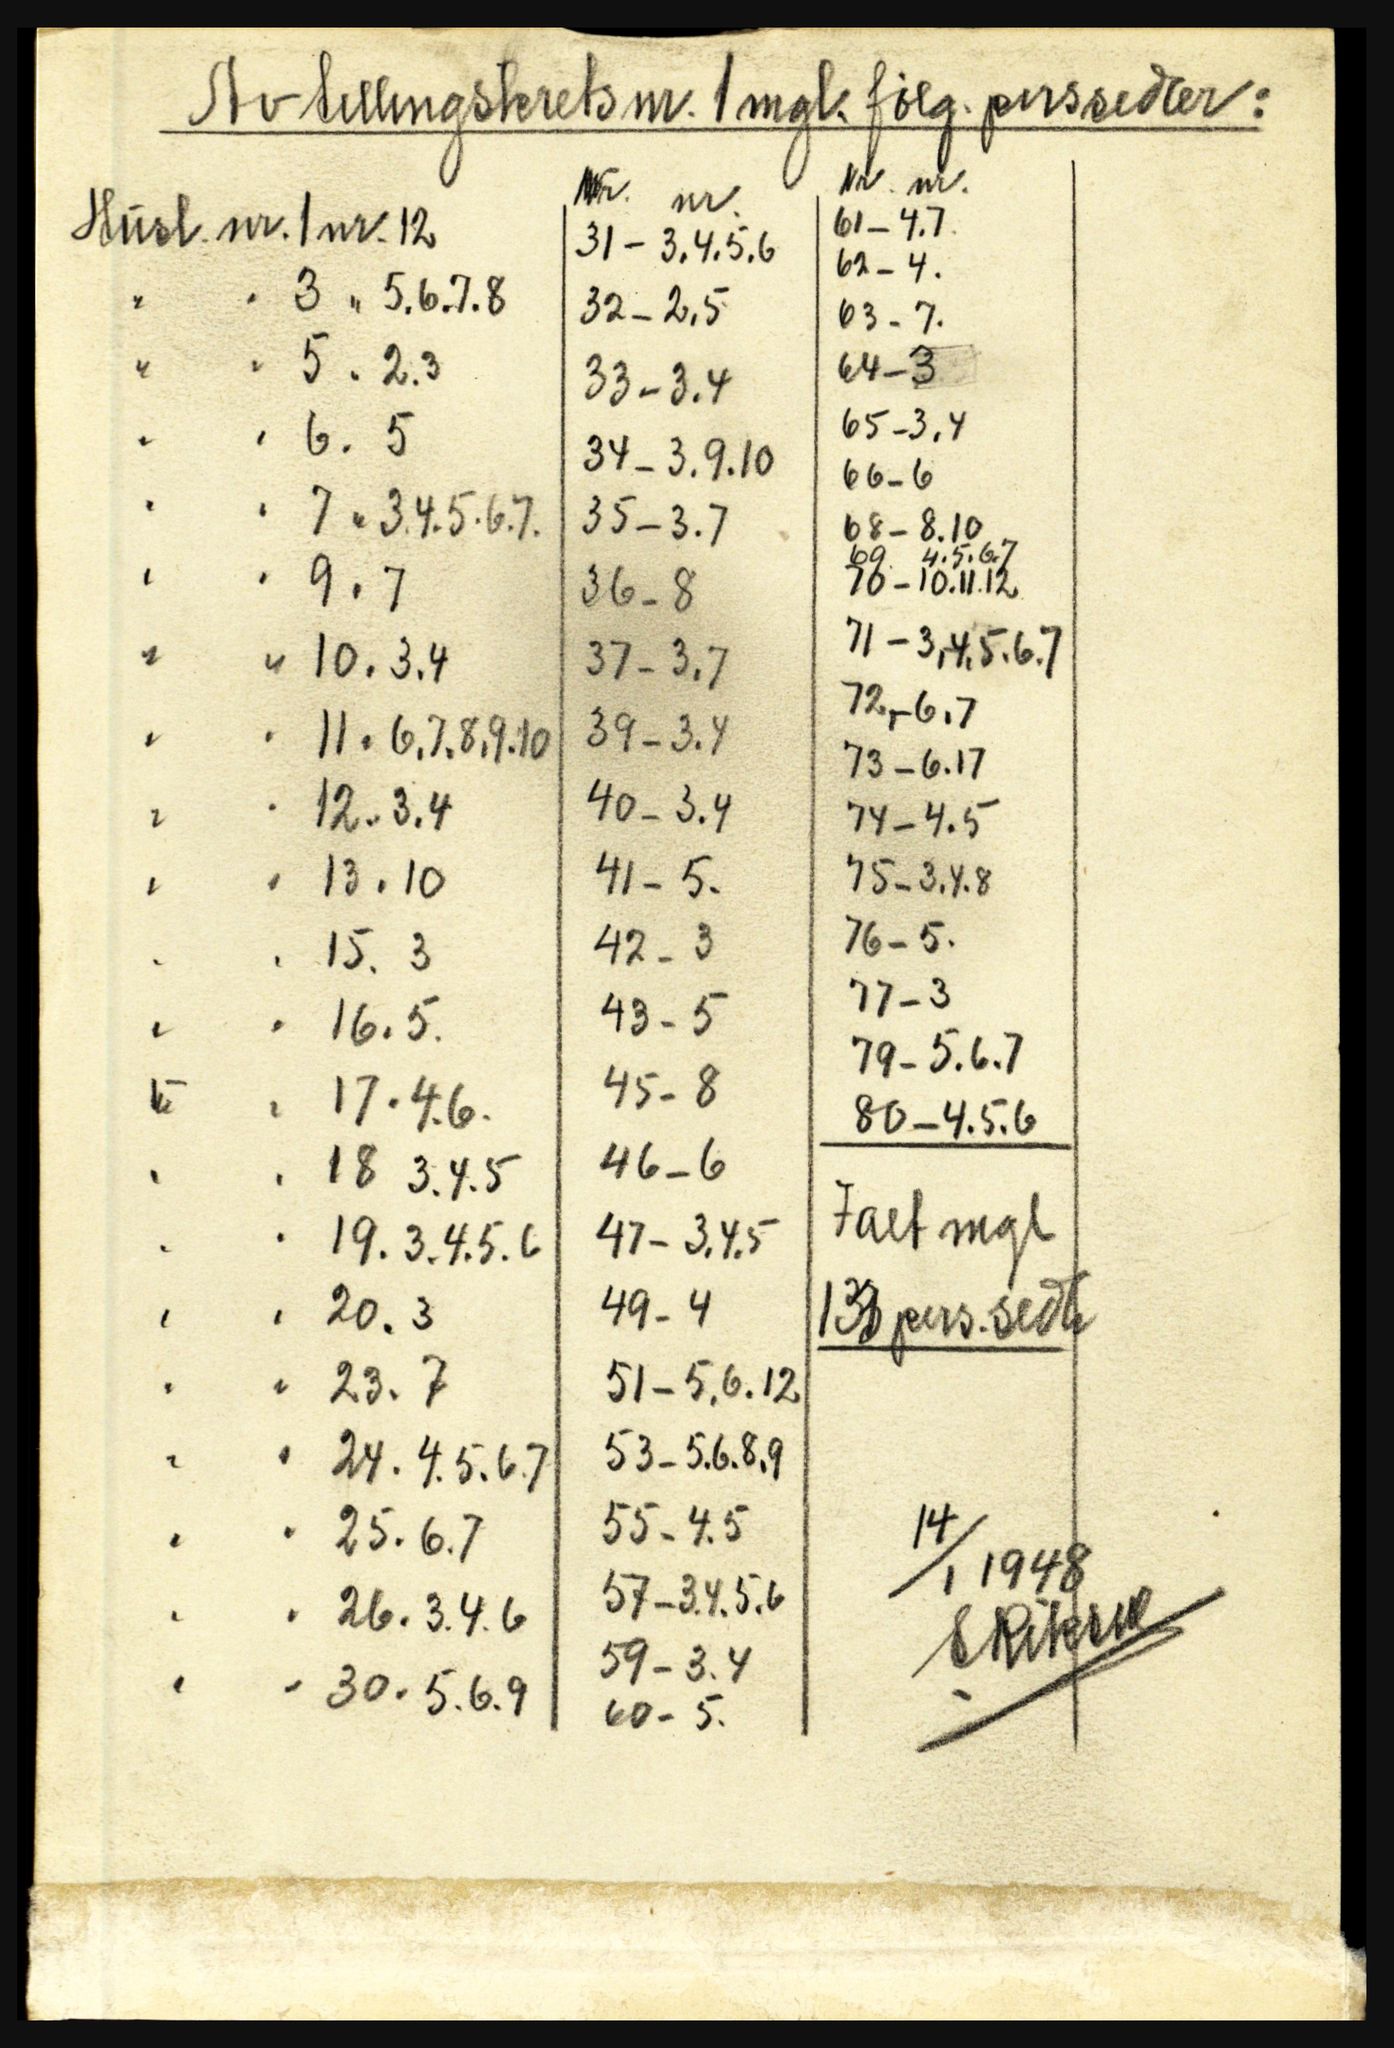 Av tellingskrets nr. 1 mgl. følg. perssedler:
Husl. nr. 1 nr. 12
" " 3 " 5.6.7.8
" " 5 . 2.3
" " 6. 5
" " 7 " 3.4.5.6.7.
" " 9 . 7
" " 10 . 3.4
" " 11 . 6.7.8.9.10
" " 12 . 3.4
" " 13 . 10
" " 15 . 3
" " 16 . 5.
" " 17 . 4.6.
" " 18 3.4.5
" " 19 . 3.4.5.6
" " 20 . 3
" " 23 . 7
" " 24 . 4.5.6.7
" " 25 . 6.7
" " 26 . 3.4.6
" " 30 . 5.6.9
Nr. nr.
31 – 3.4.5.6
32 – 2.5
33 – 3.4
34 – 3.9.10
35 – 3.7
36 – 8
37 – 3.7
39 – 3.4
40 – 3.4
41 – 5.
42 – 3
43 – 5
45 – 8
46 – 6
47 – 3.4.5
49 – 4
51 – 5.6.12
53 – 5.6.8.9
55 – 4.5
57 – 3.4.5.6
59 – 3.4
60 – 5.
Nr. nr.
61 – 4.7.
62 – 4.
63 – 7.
64 – 3
65 – 3.4
66 – 6
68 – 8.10
69 4.5.6.7
70 – 10.11.12
71 – 3.4.5.6.7
72 – 6.7
73 – 6.17
74 – 4.5
75 – 3.4.8
76 – 5.
77 – 3
79 – 5.6.7
80 – 4.5.6
I alt mgl
pers.sedle
14/1 1948